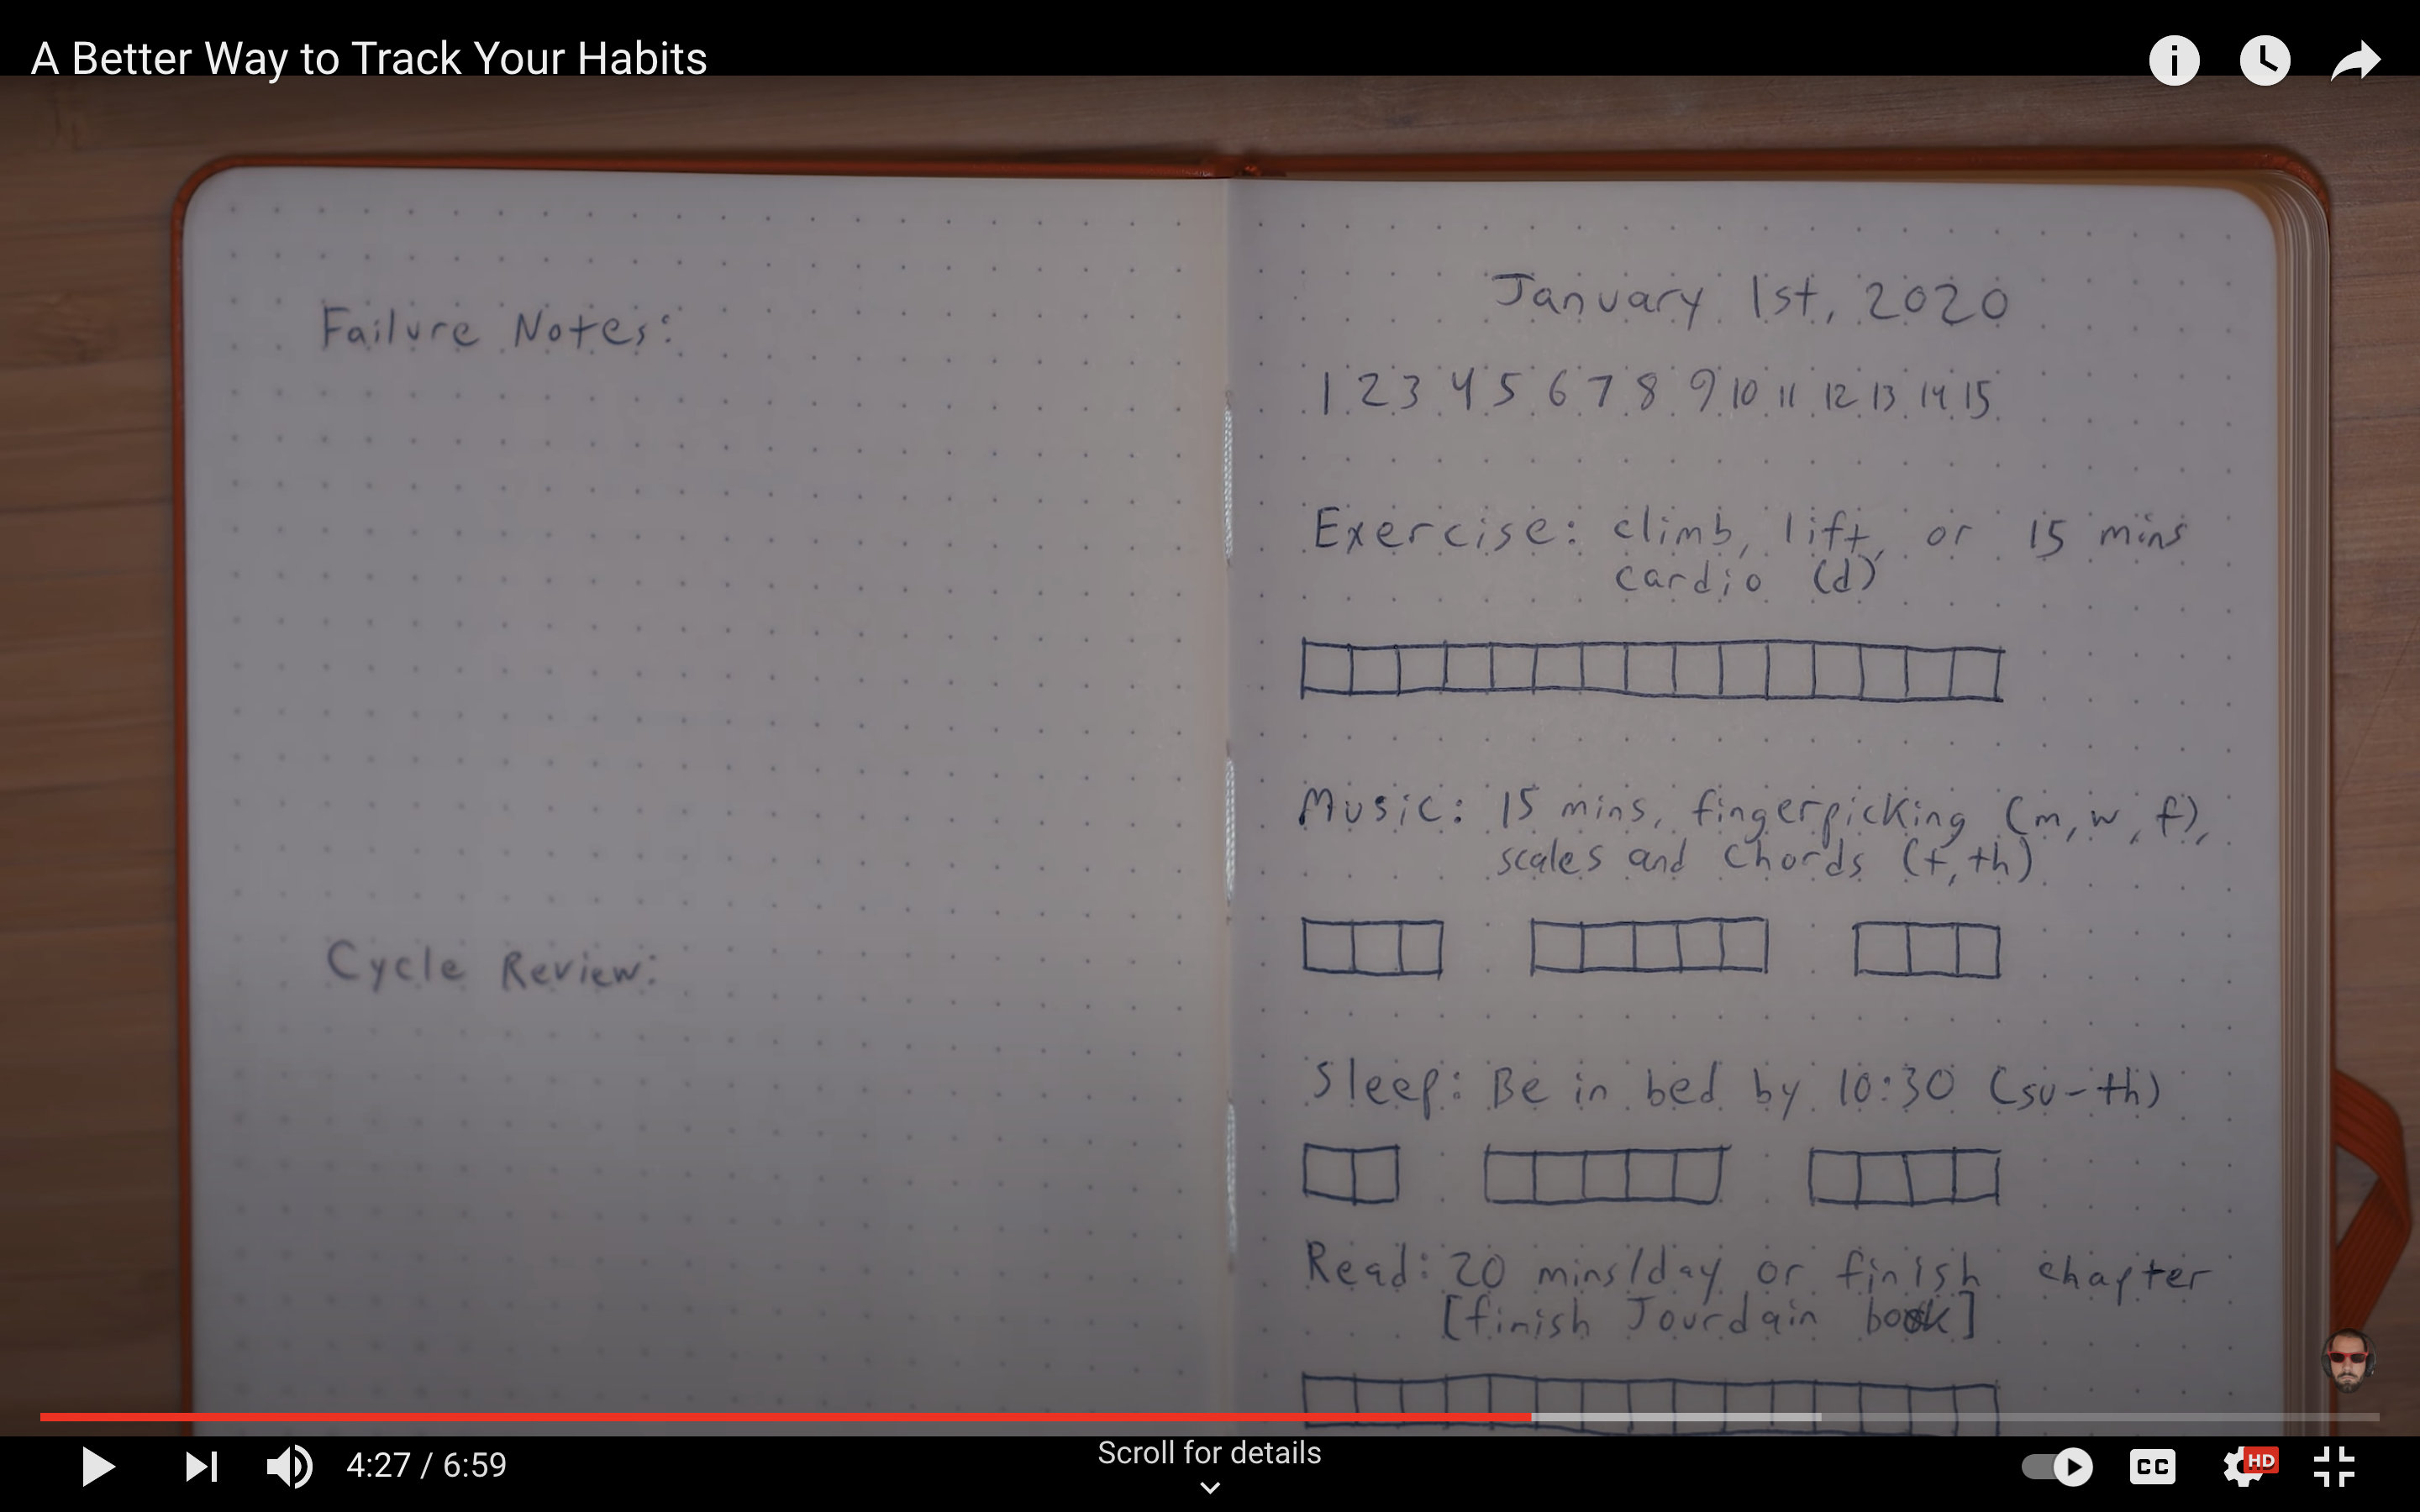 A Better Way to Track Your Habits
Failure Notes:
Cycle Review:
January 1st, 2020
1 2 3 4 5 6 7 8 9 10 11 12 13 14 15
Exercise: climb, lift, or 15 mins
cardio (d)
Music: 15 mins, fingerpicking (m, w, f),
scales and chords (t, th)
Sleep: Be in bed by 10:30 (su-th)
Read: 20 mins/day or finish chapter
[finish Jourdain book]
4:27 / 6:59
Scroll for details
CC
HD